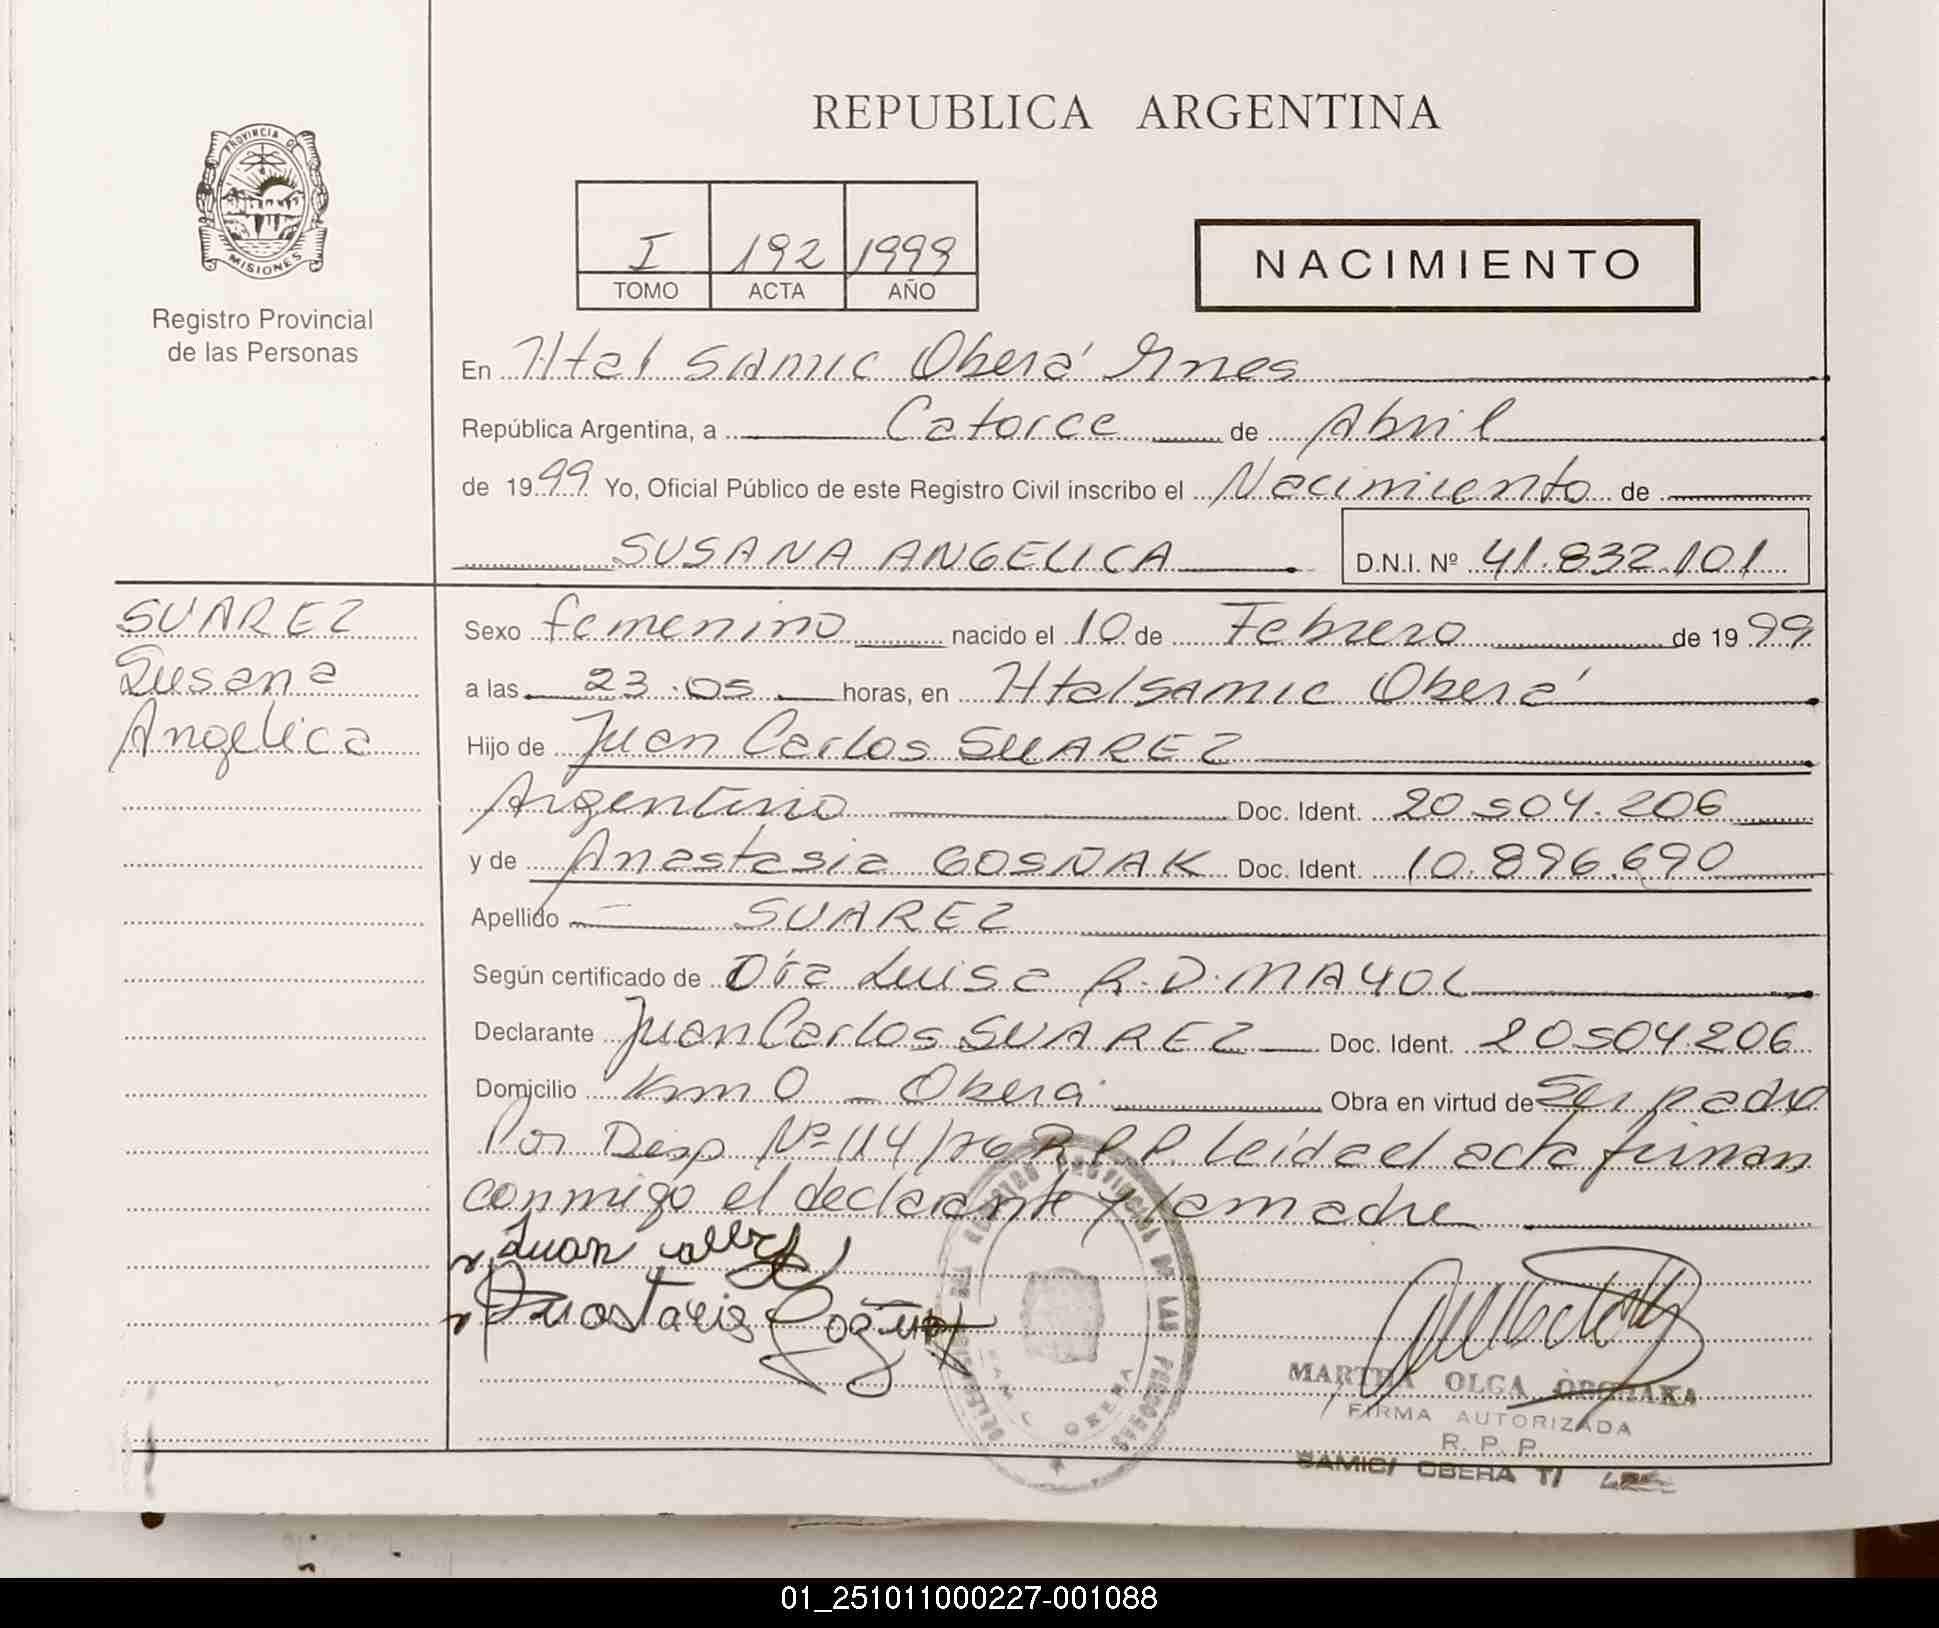 REPUBLICA ARGENTINA
PROVINCIA DE
MISIONES
Registro Provincial
de las Personas
I 192 1999
TOMO ACTA AÑO
NACIMIENTO
En Htal SAMIC Oberá Mnes
República Argentina, a Catorce de Abril
de 1999 Yo, Oficial Público de este Registro Civil inscribo el Nacimiento de
SUSANA ANGELICA D.N.I. Nº 41.832.101
SUAREZ
Susana
Angelica
Sexo femenino nacido el 10 de Febrero de 1999
a las 23.05 horas, en Htal SAMIC Oberá
Hijo de Juan Carlos SUAREZ
Argentino Doc. Ident. 20.504.206
y de Anastasia GOSÑAK Doc. Ident. 10.896.690
Apellido SUAREZ
Según certificado de Dra Luisa R.D. MAYOL
Declarante Juan Carlos SUAREZ Doc. Ident. 20504.206
Domicilio Km 0 - Oberá Obra en virtud de Ser padre
Por Disp Nº 114/76 R.P.P. Leída el acta firman
conmigo el declarante y la madre
Juan
REGISTRO PROVINCIAL DE LAS PERSONAS
SAMIC OBERA
MARTHA OLGA
FIRMA AUTORIZADA
R. P. P.
SAMIC/ OBERA T/
01_251011000227-001088